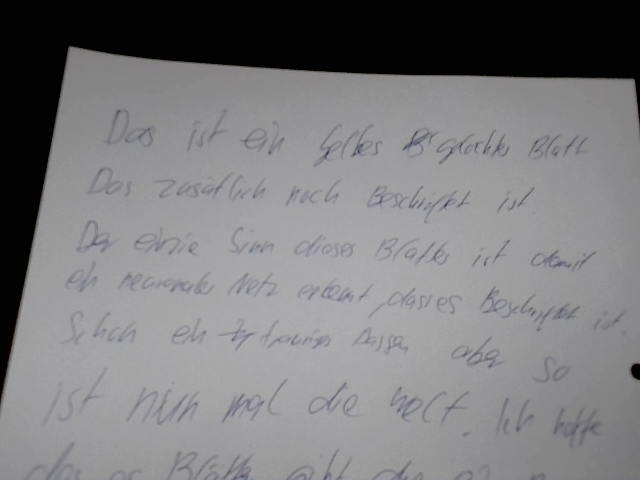 Das ist ein gelbes gelochtes Blatt
Das zusätlich noch Beschriftet ist.
Der einzie Sinn dieses Blattes ist damit
ein neuronales Netz erkennt, dass es Beschriftet ist.
Schon ein trauriges Dassen aber so
ist nun mal die Welt. Ich hoffe
das es Blätter gibt die